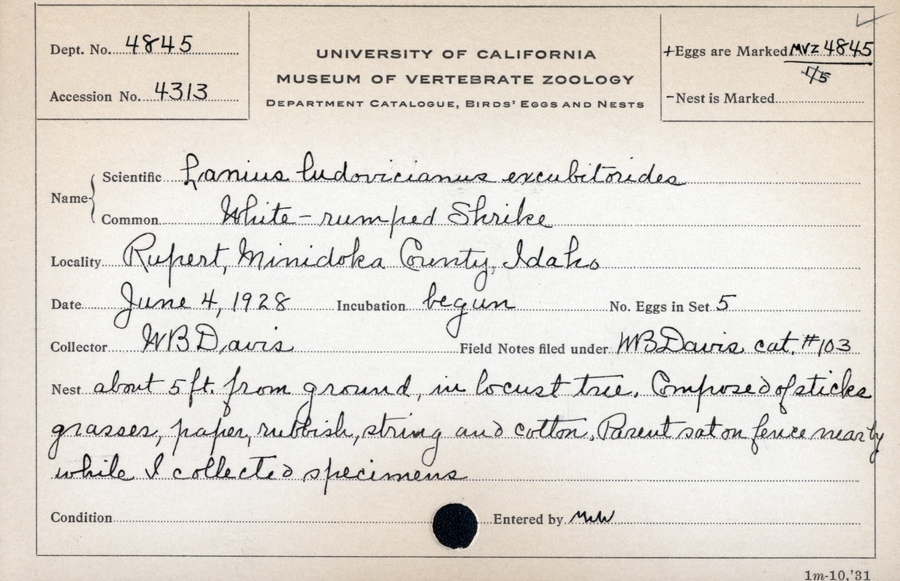 Dept. No. 4845
Accession No. 4313
UNIVERSITY OF CALIFORNIA
MUSEUM OF VERTEBRATE ZOOLOGY
DEPARTMENT CATALOGUE, BIRDS' EGGS AND NESTS
+Eggs are Marked MVZ 4845
1/5
-Nest is Marked
Name
Scientific Lanius ludovicianus excubitorides
Common White-rumped Shrike
Locality Rupert, Minidoka County, Idaho
Date June 4, 1928 Incubation begun No. Eggs in Set 5
Collector WB Davis Field Notes filed under WB Davis cat. #103
Nest about 5 ft. from ground, in locust tree. Composed of sticks
grasses, paper, rubbish, string and cotton. Parent sat on fence nearby
while I collected specimens
Condition Entered by
1m-10,'31